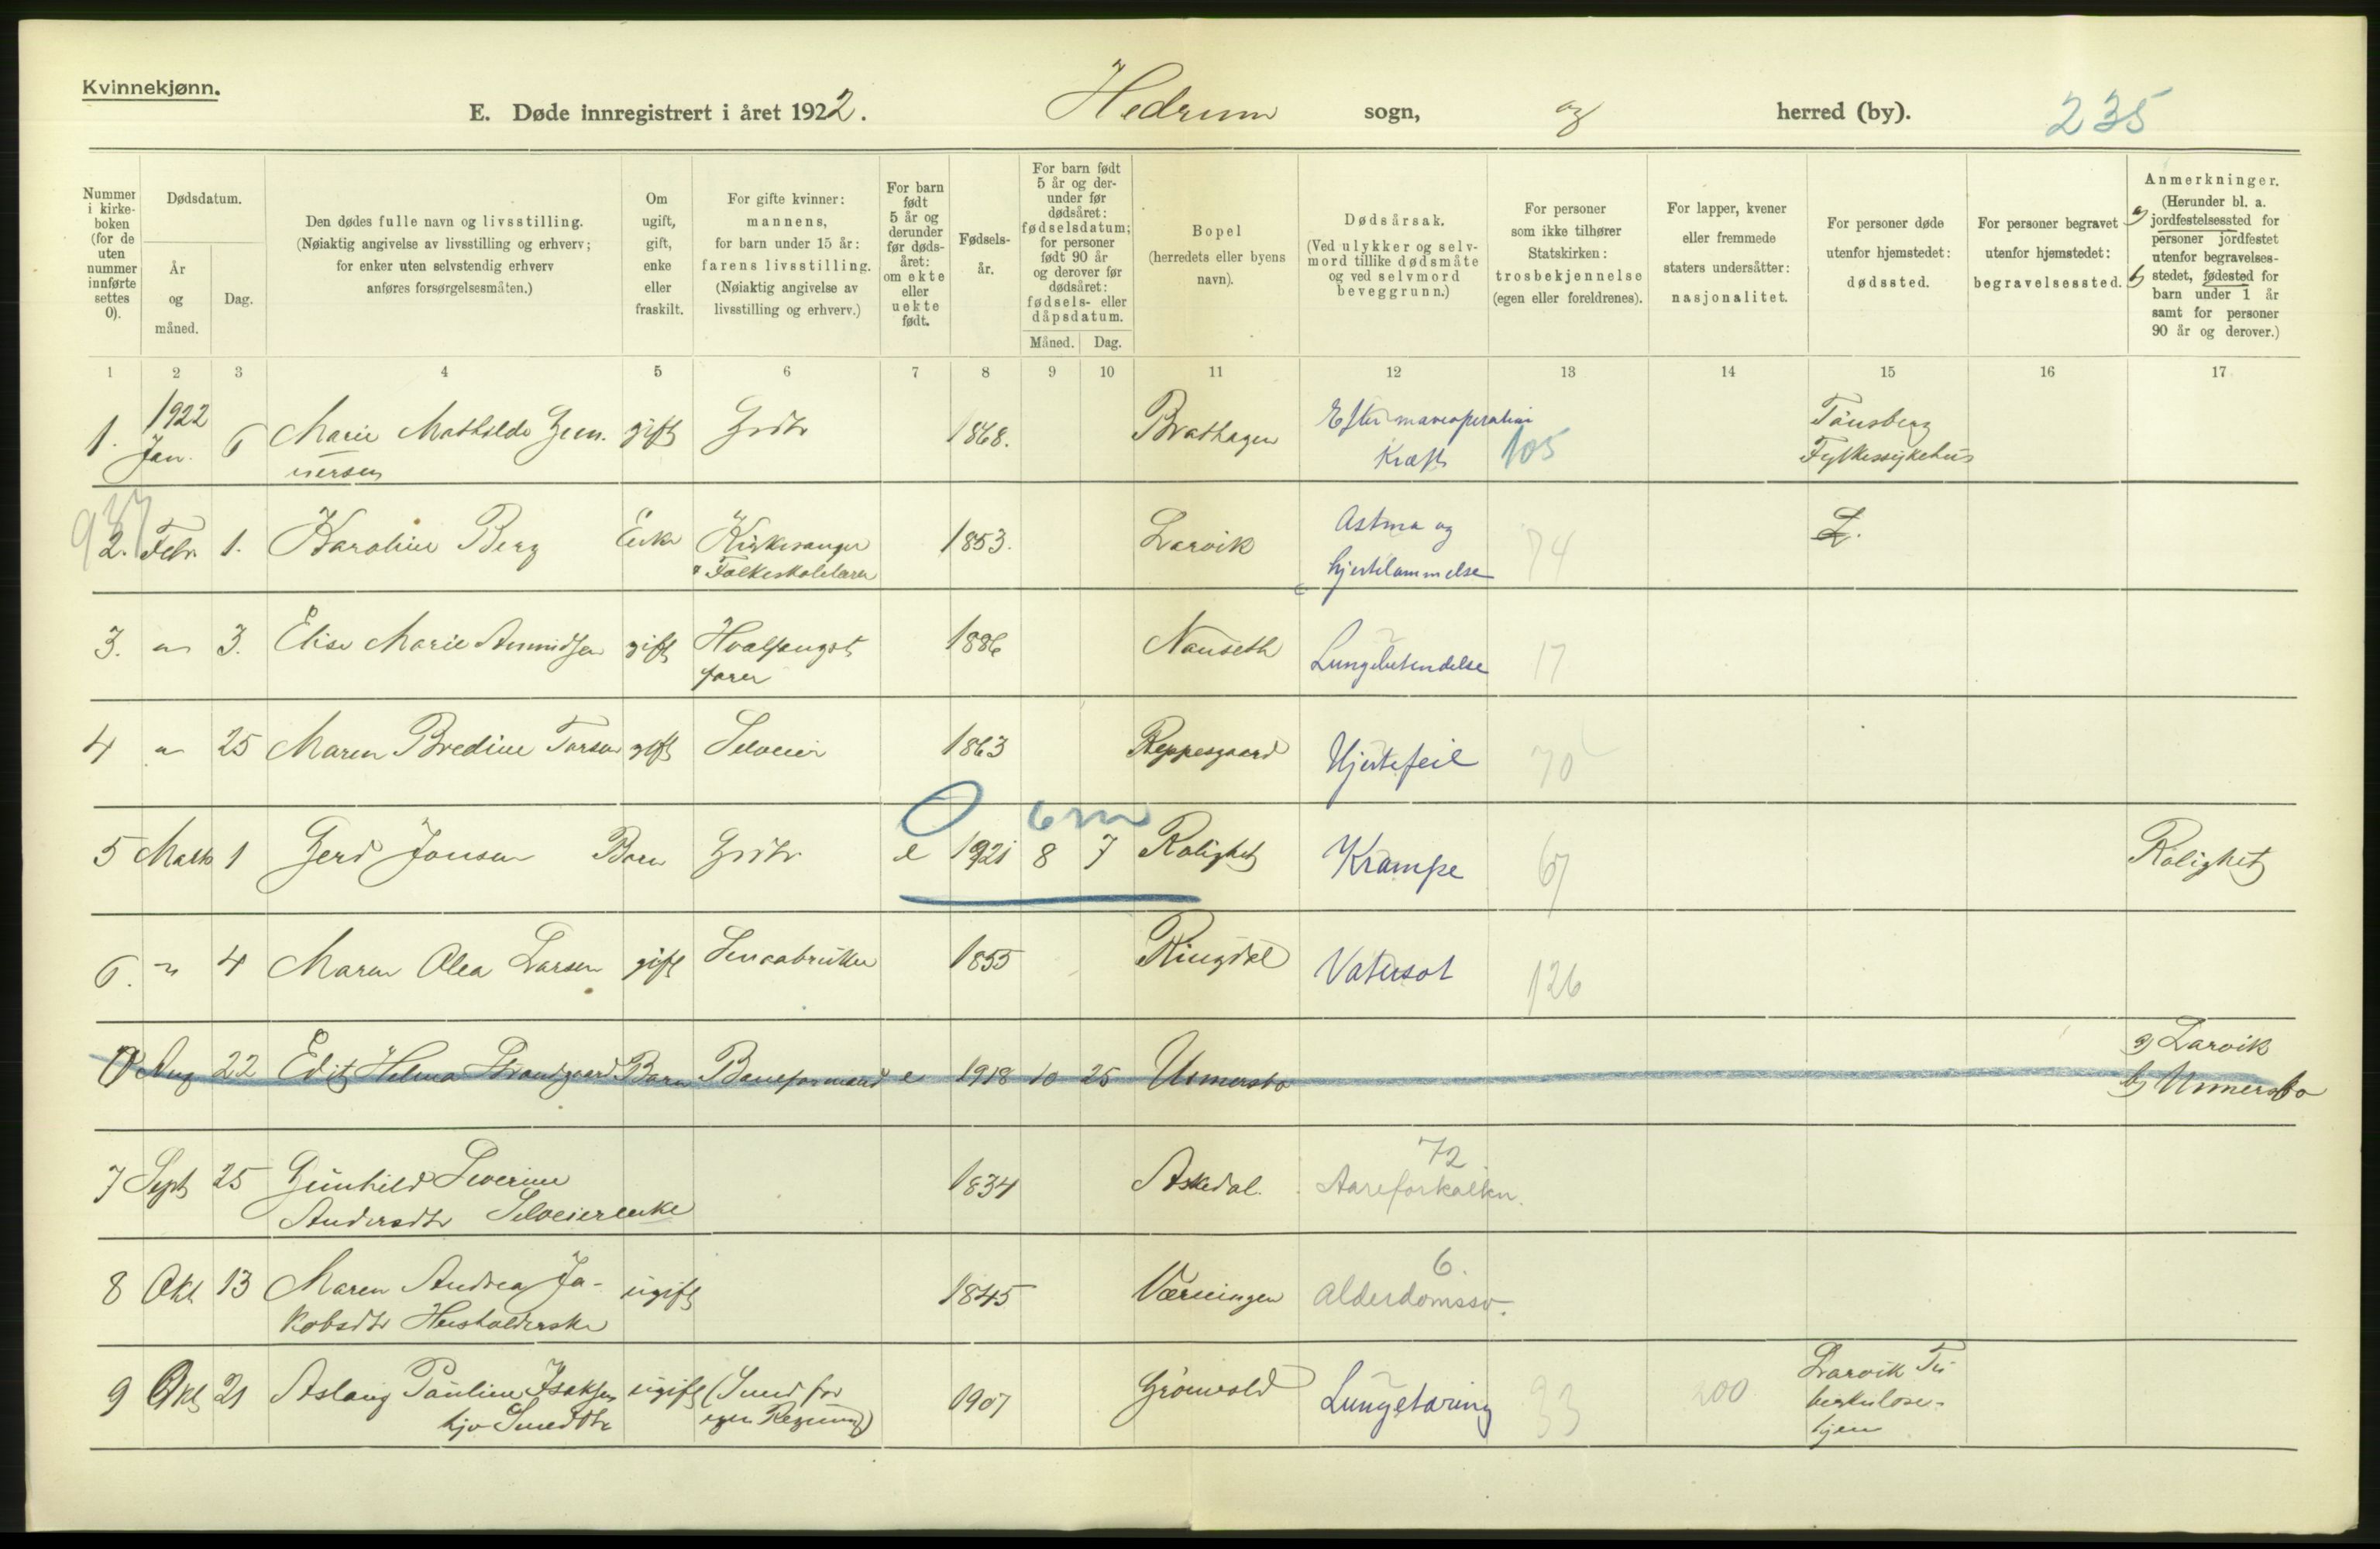 Kvinnekjønn.
E. Døde innregistrert i året 1922. Hedrum sogn, og herred (by). 235
Nummer i kirke-boken (for de uten nummer innførte settes 0).
Dødsdatum.
År og måned.
Dag.
Den dødes fulle navn og livsstilling.
(Nøiaktig angivelse av livsstilling og erhverv;
for enker uten selvstendig erhverv
anføres forsørgelsesmåten.)
Om ugift, gift, enke eller fraskilt.
For gifte kvinner: mannens, for barn under 15 år: farens livsstilling. (Nøiaktig angivelse av livsstilling og erhverv.)
For barn født 5 år og derunder før døds-året: om ekte eller uekte født.
Fødsels-år.
For barn født 5 år og der-under før dødsåret: fødselsdatum; for personer født 90 år og derover før dødsåret: fødsels- eller dåpsdatum.
Måned. Dag.
Bopel (herredets eller byens navn).
Dødsårsak. (Ved ulykker og selv-mord tillike dødsmåte og ved selvmord beveggrunn.)
For personer som ikke tilhører Statskirken: trosbekjennelse (egen eller foreldrenes).
For lapper, kvener eller fremmede staters undersåtter: nasjonalitet.
For personer døde utenfor hjemstedet: dødssted.
For personer begravet utenfor hjemstedet: begravelsessted.
Anmerkninger. (Herunder bl. a. a) jordfestelsessted for personer jordfestet utenfor begravelses-stedet, b) fødested for barn under 1 år samt for personer 90 år og derover.)
1 2 3 4 5 6 7 8 9 10 11 12 13 14 15 16 17
1. 1922 Jan. 6 Marie Mathilde gift Grdbr 1868. Brathagen Efter maveoperation Kræft 105 Tønsberg Fylkessykehus
937
2. Febr. 1. Karoline Berg Enke Kirkesanger Folkeskolelærer 1853. Larvik Astma og hjertelammelse 74 L.
3. " 3. Elise Marie gift Hvalfangst farer 1886 Nauseth Lungebetendelse 17
4 " 25 Maren Bredine gift Selveier 1863 Reppesgaard Hjertefeil 70
0 6 m
5 Marts 1 Gerd Jonsen Barn Grdbr e 1921 8 7 Rolighet Krampe 67 Rolighet
6. " 4 Maren Olea Larsen gift 1855 Ringdal Vatersot 126
0 Aug 22 Edit Helma Strandgaard Barn Baneformand e 1918 10 25 Unnersbo a) Larvik
b) Unnersbo
7 Sept 25 Gunhild Severine
Andersdtr Selveierenke 1834 Askedal. 72 Aareforkalkn.
8 Okt 13 Maren Andrea Ja-
kobsdtr Husholderske ugift 1845 6. Alderdomssv.
9 Okt 21 Aslaug Pauline Isaksen
hjv Smeddtr ugift (Smed for egen Regning) 1901 Grönvold Lungetæring 33 200 Larvik Tu-
berkulose-
hjem